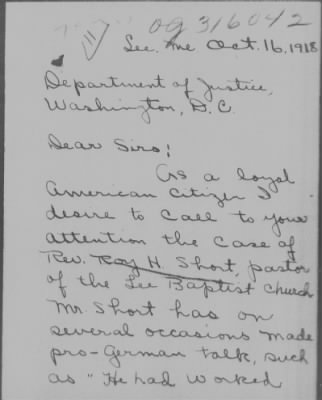 og 316042
Lee. Me Oct. 16. 1918
Department of Justice,
Washington, D.C.
Dear Sirs;
As a loyal
American Citizen I
desire to call to your
attention the case of
Rev. Roy H. Short, pastor
of the Lee Baptist Church
Mr. Short has on
several occasions made
pro-German talk, such
as "He had worked